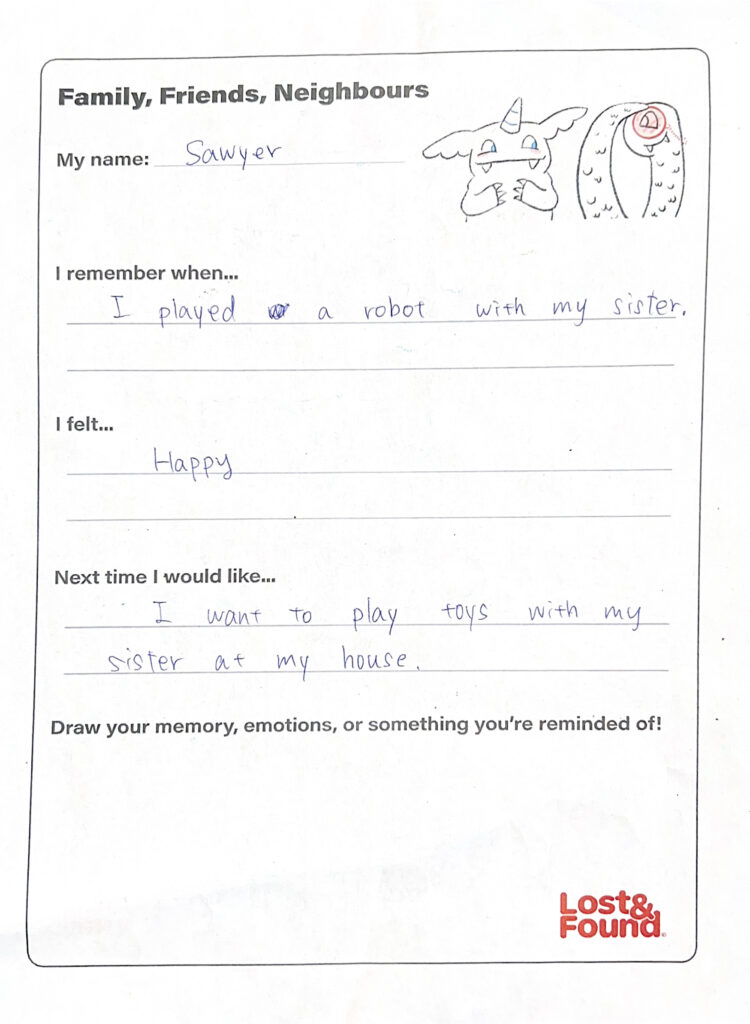 Family, Friends, Neighbours
My name: Sawyer
I remember when...
I played a robot with my sister.
I felt...
Happy
Next time I would like...
I want to play toys with my
sister at my house.
Draw your memory, emotions, or something you're reminded of!
Lost&
Found®